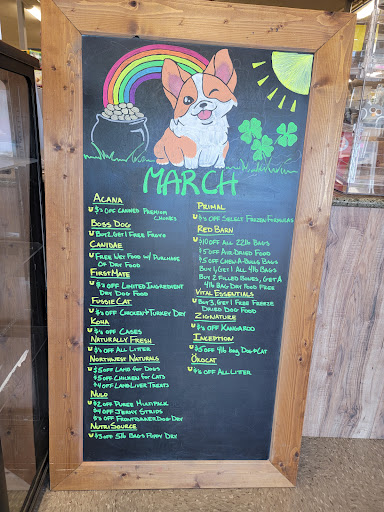 MARCH
ACANA
$'s OFF CANNED PREMIUM
CHUNKS
BOSS DOG
BUY 2, GET 1 FREE FROYO
CANIDAE
FREE WET FOOD W/ PURCHASE
OF DRY FOOD
FIRSTMATE
$'s OFF LIMITED INGREDIENT
DRY DOG FOOD
FUSSIE CAT
$'s OFF CHICKEN & TURKEY DRY
KOHA
$'s OFF CASES
NATURALLY FRESH
$'s OFF ALL LITTER
NORTHWEST NATURALS
$5 OFF LAMB FOR DOGS
$5 OFF CHICKEN FOR CATS
$4 OFF LAMB LIVER TREATS
NULO
$2 OFF PUREE MULTIPACK
$4 OFF JERKY STRIPS
$'s OFF FRONTRUNNER DOG DRY
NUTRISOURCE
$3 OFF 5lb BAGS PUPPY DRY
PRIMAL
$'s OFF SELECT FROZEN FORMULAS
RED BARN
$10 OFF ALL 22lb BAGS
$5 OFF AIR DRIED FOOD
$5 OFF CHEW-A-BULLS BAGS
BUY 1, GET 1 ALL 4lb BAGS
BUY 2 FILLED BONES, GET A
4lb BAG DRY FOOD FREE
VITAL ESSENTIALS
BUY 3, GET 1 FREE FREEZE
DRIED DOG FOOD
ZIGNATURE
$'s OFF KANGAROO
INCEPTION
$5 OFF 4lb BAG DOG & CAT
ÖKOCAT
$'s OFF ALL LITTER